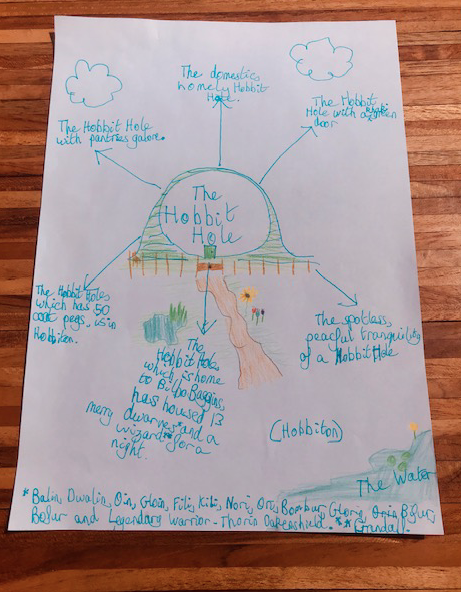 The domestic,
homely Hobbit
Hole.
The Hobbit
Hole with a
door
The Hobbit Hole
with pantries galore.
The
Hobbit
Hole
The Hobbit Hole,
which has 50
coat pegs, is in
Hobbiton.
The
Hobbit Hole,
which is home
to Bilbo Baggins,
has housed 13
merry dwarves* and a
wizard** for a
night.
The spotless,
peaceful tranquility
of a Hobbit Hole
(Hobbiton)
The Water
*Balin, Dwalin, Oin, Gloin, Fili, Kili, Nori, Ori, Bombur,
Bofur and Legendary Warrior - Thorin Oakenshield. **Gandalf.